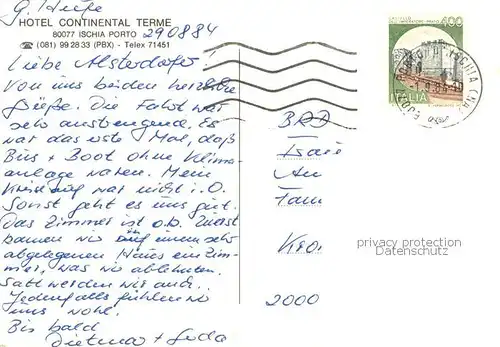 G. Liefe
HOTEL CONTINENTAL TERME
80077 ISCHIA PORTO
☎ (081) 99 28 33 (PBX) - Telex 71451
290884
Liebe Alsterdorfer.
Von uns beiden herzliche
Grüße. Die Fahrt war
sehr anstrengend. Es
war das erste Mal, daß
Bus + Boot ohne Klima-
anlage waren. Mein
Kreislauf war nicht i.O.
Sonst geht es uns gut.
Das Zimmer ist o.k. Zuerst
kamen wir auf einen sehr
abgelegenen Haus ein Zim-
mer, was wir ablehnten.
Satt werden wir auch.
Jedenfalls fühlen wir
uns wohl.
Bis bald
Dietmar +
400
ITALIA
ISCHIA (NA)
BRD
An
Fam
2000
privacy protection
Datenschutz